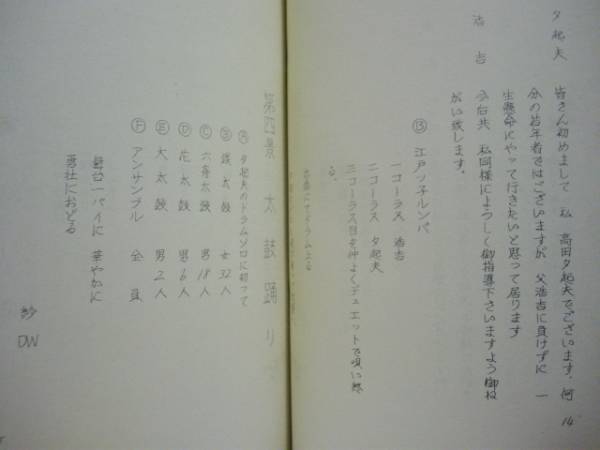 14
夕起夫　皆さん初めまして　私　高田夕起夫でございます。何
分の若年者ではございますが　父浩吉に負けずに　一
生懸命にやって行きたいと思って居ります
浩吉　今后共　私同様によろしく御指導下さいますよう御ね
がい致します。
⑬　江戸ッ子ルンバ
一コーラス　浩吉
二コーラス　夕起夫
三コーラス目を仲よくデュエットで唄い終
る。
第四景　太鼓踊り
Ⓐ　夕起夫のドラムソロに初って
Ⓑ　鋲太鼓　女32人
Ⓒ　六斉太鼓　男18人
Ⓓ　花太鼓　男6人
Ⓔ　大太鼓　男2人
Ⓕ　アンサンブル　全員
舞台一パイに　華やかに
勇壮におどる
紗
DW